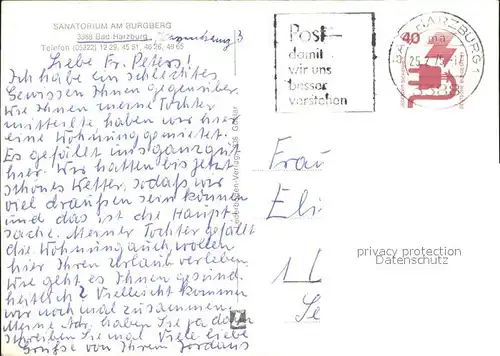 SANATORIUM AM BURGBERG
3388 Bad Harzburg,
Telefon (05322) 12 29, 45 91, 46 26, 49 65
Liebe Fr. Peters!
Ich habe ein schlechtes
Gewissen Ihnen gegenüber.
Wie Ihnen meine Tochter
mitteilte haben wir hier
eine Wohnung gemietet.
Es gefällt uns ganz gut
hier. Wir hatten bis jetzt
schönes Wetter, sodass wir
viel draußen sein können
und das ist die Haupt
sache. Meiner Tochter gefällt
die Wohnung auch, wollen
hier Ihren Urlaub verleben.
Wie geht es Ihnen gesund
heitlich? Vielleicht kommen
wir noch mal zusammen.
Meine Adr. haben Sie ja dann
schreiben Sie mal. Viele liebe
Grüsse von Ihrem Jordans
Post-
damit
wir uns
besser
verstehen
BAD HARZBURG 1
40
Frau
Eli
privacy protection
Datenschutz